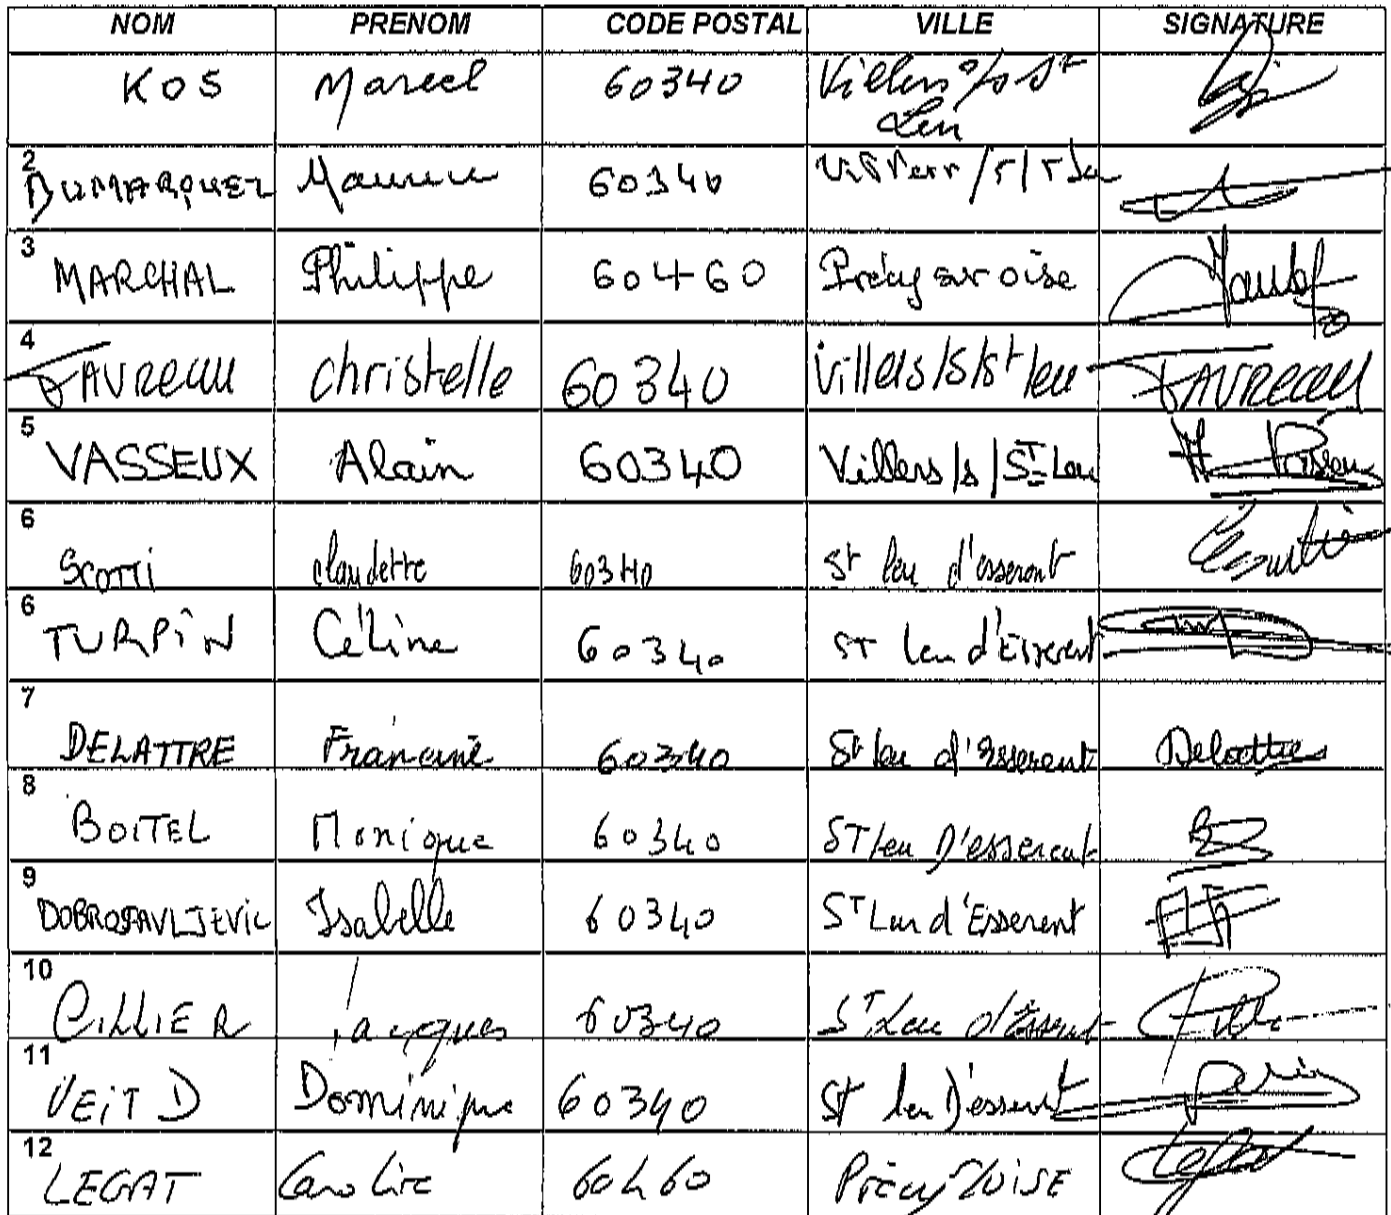 NOM PRENOM CODE POSTAL VILLE SIGNATURE
KOS Marcel 60340 Villers s/s St
Leu
2 DUMARQUEZ Maurice 60340
3 MARCHAL Philippe 60460 Précy sur oise
4 FAVREAU christelle 60340 villers/s/st leu FAVREAU
5 VASSEUX Alain 60340 Villers /s /ST Leu
6 SCOTTI claudette 60340 St leu d'esserent
6 TURPIN Céline 60340 ST leu d'Esserent
7 DELATTRE Francine 60340 St leu d'Esserent Delattre
8 BOITEL Monique 60340 ST leu D'esserent
9 Isabelle 60340 ST Leu d'Esserent
10 CILLIER Jacques 60340 ST Leu d'Esserent
11 VEIT D Dominique 60340 St leu D'esserent
12 LEGAT Caroline 60460 Précy S/OISE